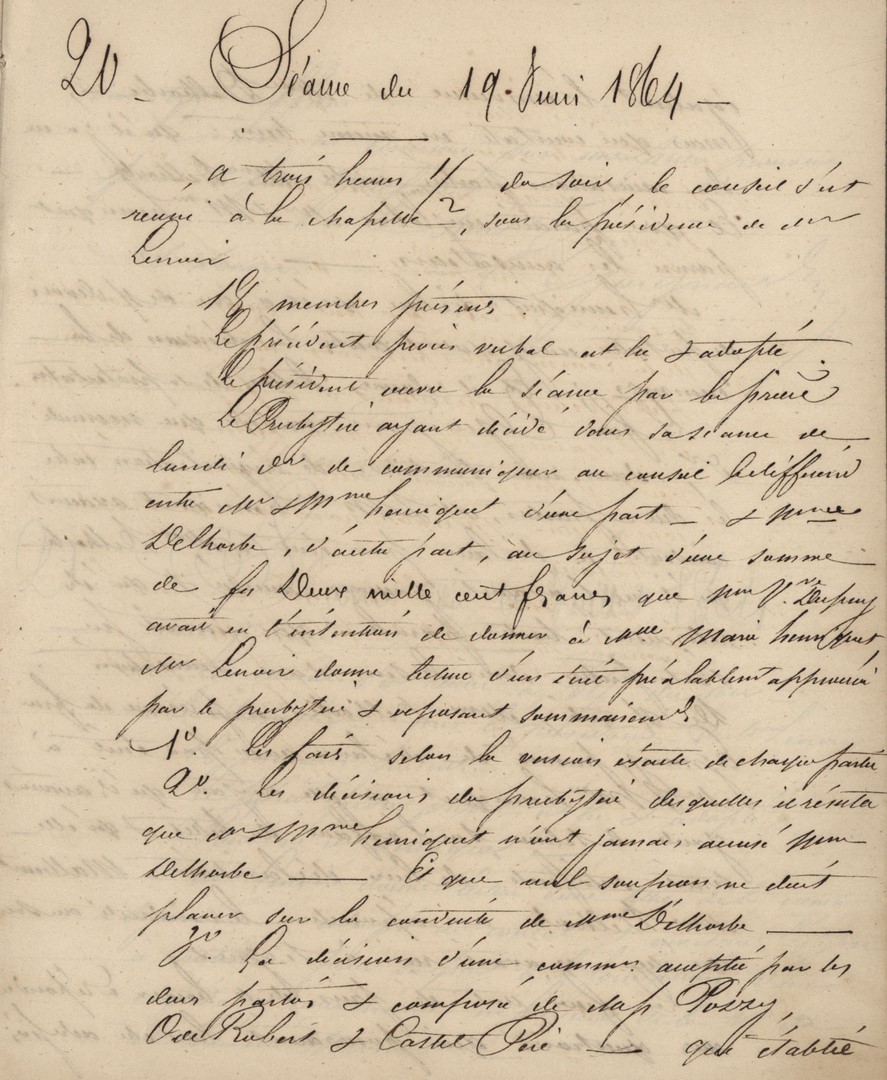 20 - Séance du 19 Juin 1864 -
A trois heures 1/2 du soir, le conseil s'est
réuni à la chapelle, sous la présidence de Mr
Lenoir
18 membres présents.
Le précédent procès verbal est lu & adopté.
Le président ouvre la séance par la prière
Le Presbytère ayant décidé dans sa séance de
lundi de communiquer au conseil le différend
entre Mr & Mme henriquet d'une part — & Mme
Delhorbe, d'autre part, au sujet d'une somme
de fs Deux mille cent francs que Mme Vve Dupuy
avait eu l'intention de donner à Mlle Marie henriquet
Mr Lenoir donne lecture d'un écrit préalablemt approuvé
par le presbytère & exposant sommairemt
1º. Les faits selon la version exacte de chaque partie
2º. Les décisions du presbytère desquelles il résulte
que Mr & Mme henriquet n'ont jamais accusé Mme
Delhorbe — Et que nul soupçon ne doit
planer sur la conduite de Mme Delhorbe —
3º. La décision d'une commn acceptée par les
deux parties & composée de Mrs Pozzy,
O de Robert & Castel Père — qui établit